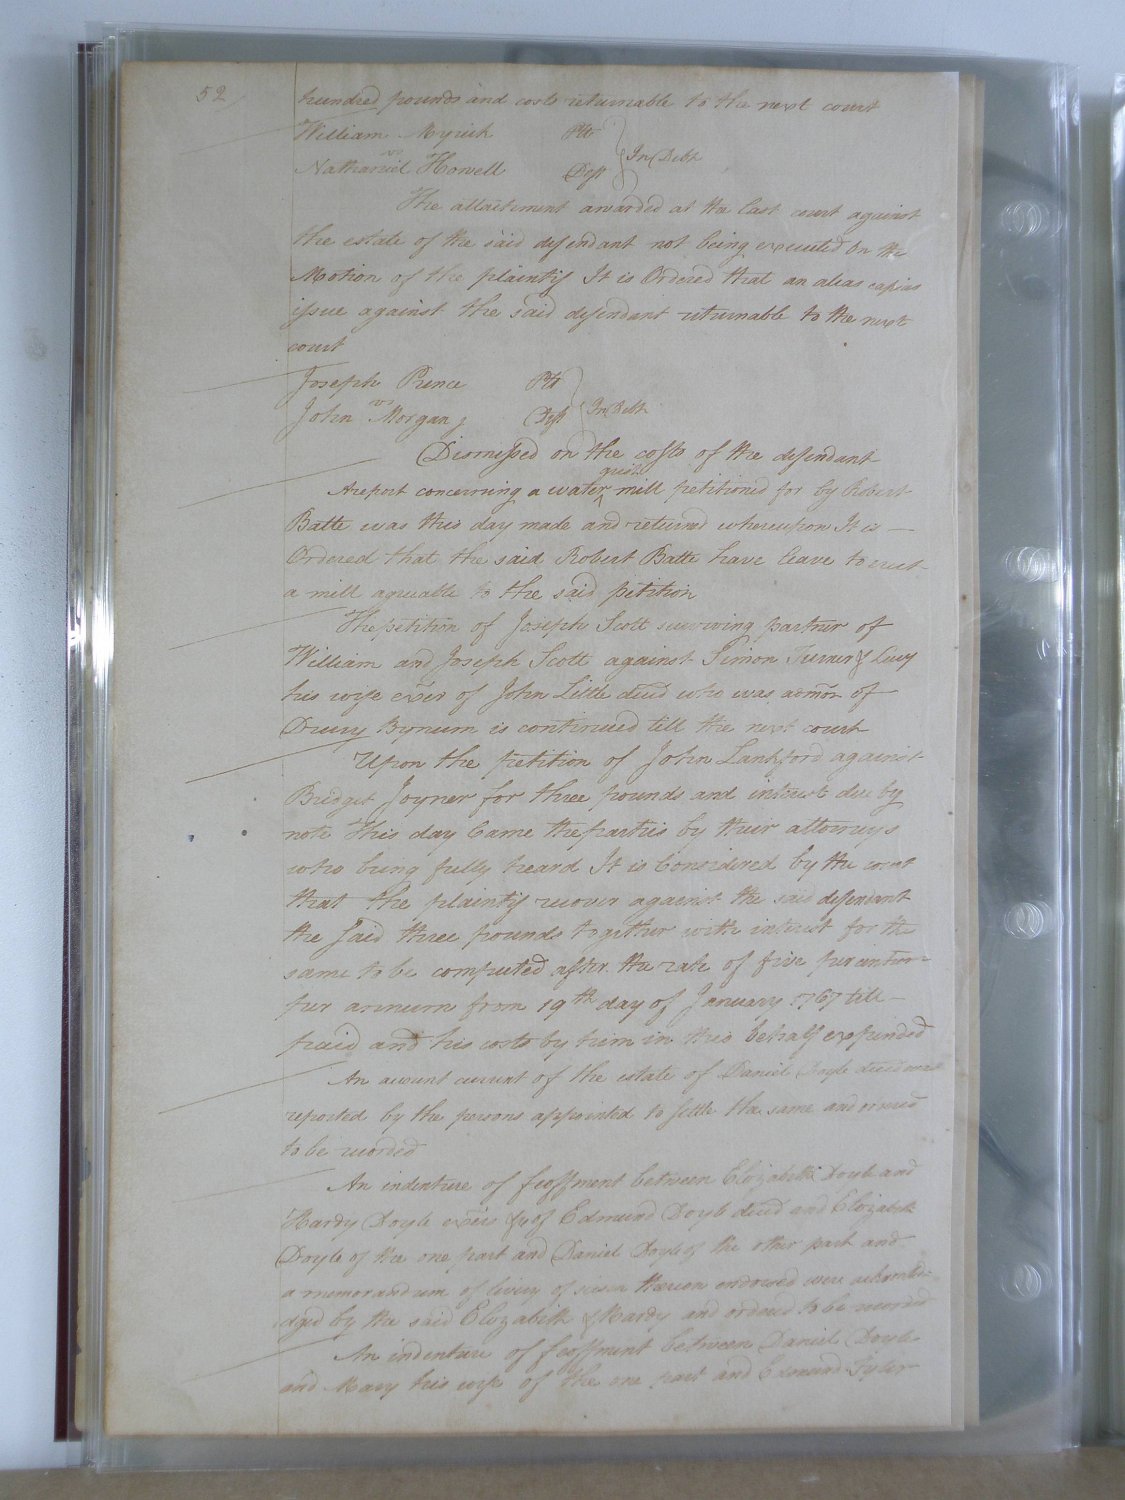 52
hundred pounds and costs returnable to the next court
William Myrick Plt
vs In Debt
Nathaniel Howell Deft
The attachment awarded at the last court against
the estate of the said defendant not being executed On the
Motion of the plaintif It is Ordered that an alias capias
issue against the said defendant returnable to the next
court
Joseph Prince Plt
vs In Debt
John Morgan Deft
Dismissed on the costs of the defendant
grist
A report concerning a water mill petitioned for by Robert
Batte was this day made and returned whereupon It is
Ordered that the said Robert Batte have leave to erect
a mill agreeable to the said petition
The petition of Joseph Scott surviving partner of
William and Joseph Scott against Simon Turner & Lucy
his wife exčrs of John Little decd who was admor of
Drury Bynum is continued till the next court
Upon the petition of John Lankford against
Bridget Joyner for three pounds and interest due by
note This day Came the parties by their attorneys
who being fully heard It is Considered by the court
that the plaintif recover against the said defendant
the said three pounds together with interest for the
same to be computed after the rate of five per centum
per annum from 19th day of January 1767 till
paid and his costs by him in this behalf expended
An account current of the estate of Daniel Doyle decd was
reported by the persons appointed to settle the same and
to be recorded
An indenture of feoffment between Elizabeth Doyle and
Hardy Doyle of Edmund Doyle decd and Elizabeth
Doyle of the one part and Daniel Doyle of the other part and
a memorandum of livery of seisin thereon endorsed were acknowle-
dged by the said Elizabeth & Hardy and ordered to be recorded
An indenture of feoffment between Daniel Doyle
and Mary his wife of the one part and Edmund Tyler